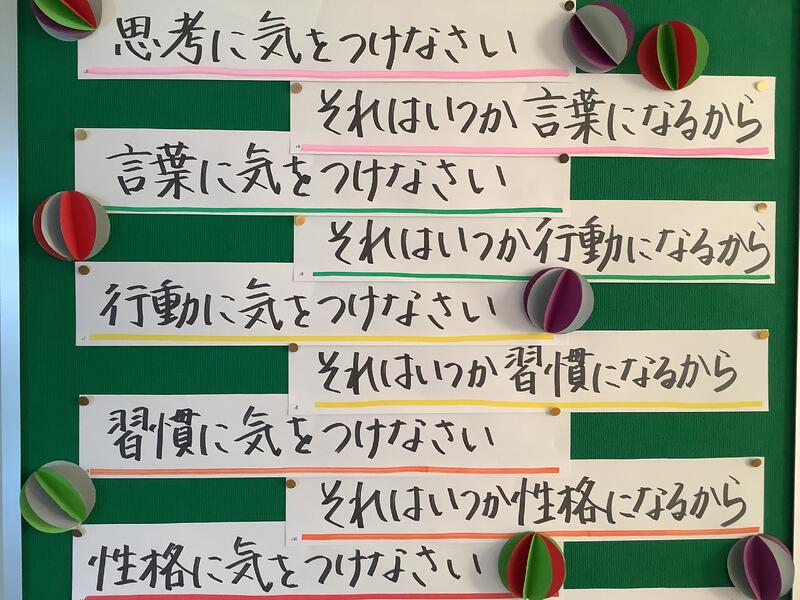 思考に気をつけなさい
それはいつか言葉になるから
言葉に気をつけなさい
それはいつか行動になるから
行動に気をつけなさい
それはいつか習慣になるから
習慣に気をつけなさい
それはいつか性格になるから
性格に気をつけなさい